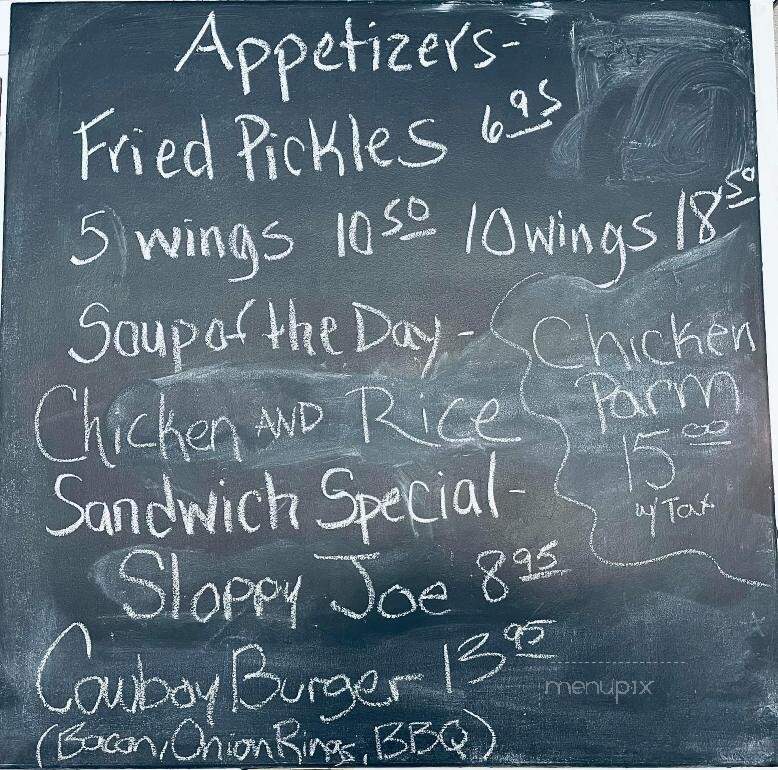 Appetizers-
Fried Pickles 6.95
5 wings 10.50 10 wings 18.50
Soup of the Day -
Chicken AND Rice
Sandwich Special-
Sloppy Joe 8.95
Cowboy Burger 13.95
(Bacon, Onion Rings, BBQ)
Chicken
Parm
15.00
w/ Tax
menupix